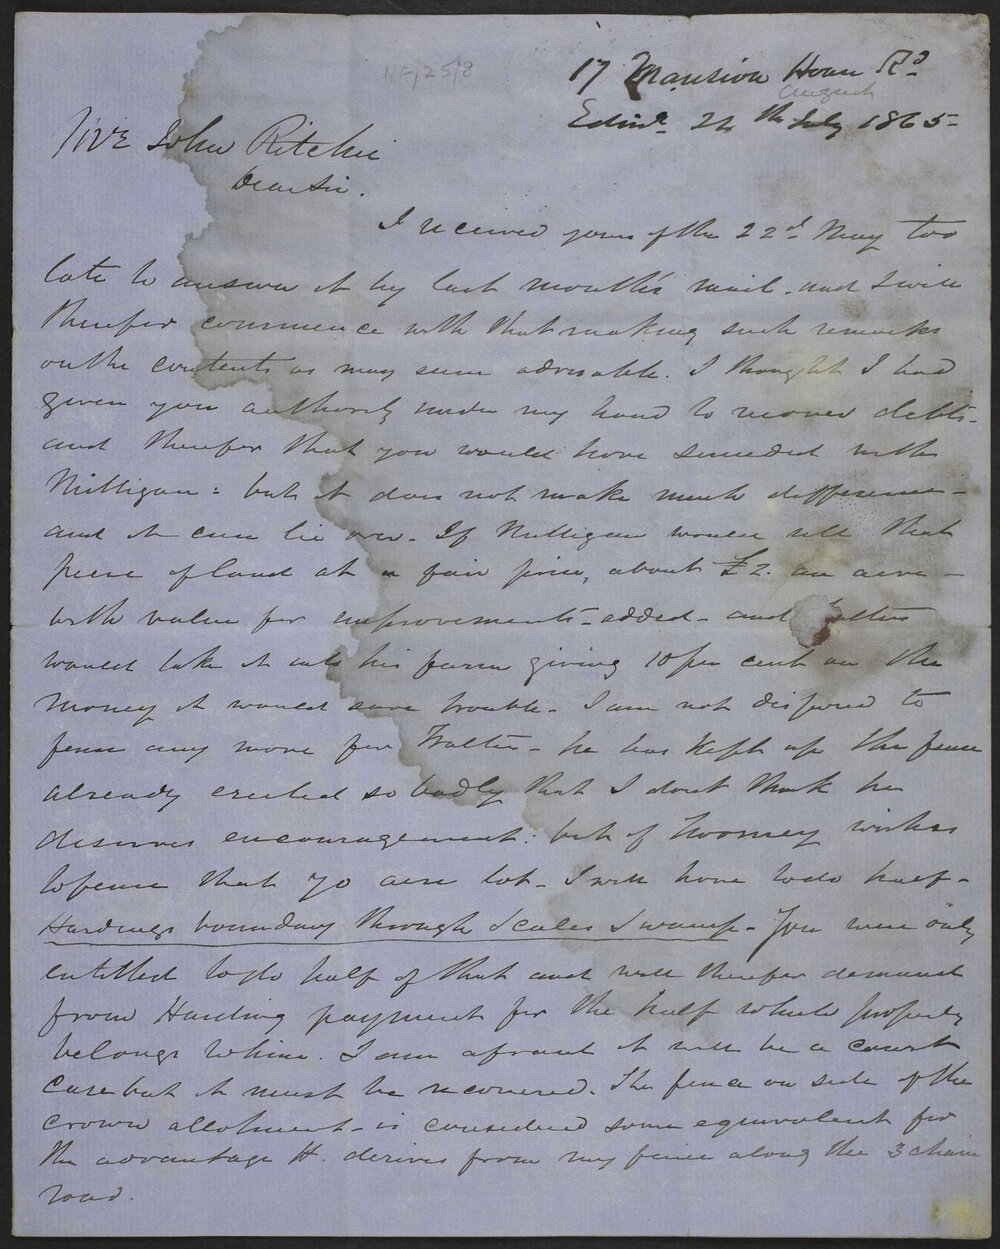 112/25/8
17 Mansion House Rd
august
Edinr 24th July 1865
John Ritchie
Dear Sir.
I received yours of the 22d May too
late to answer it by last month's mail - and I will
therefor commence with that making such remarks
on the contents as may seem advisable. I thought I had
given you authority under my hand to recover debts -
and therefor that you would have succeeded with
Milligan: but it does not make much difference -
and it can lie over. If Milligan would sell that
piece of land at a fair price, about £2. an acre -
with value for improvements - added - and
would take it into his farm giving 10 per cent on the
money it would save trouble - I am not disposed to
fence any more for Walter - he has kept up the fence
already erected so badly that I dont think he
deserves encouragement: but if Toomey wishes
to fence that 70 acre lot - I will have to do half -
Hardings boundary through Scales Swamp - You were only
entitled to do half of that and will therefor demand
from Harding payment for the half which properly
belongs to him. I am afraid it will be a court
case but it must be recovered. The fence on side of the
crown allotment - is considered some equivalent for
the advantage H. derives from my fence along the 3 chain
road.